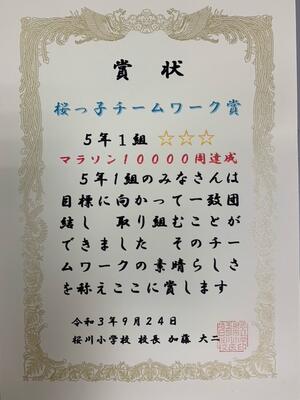 賞状
桜っ子チームワーク賞
5年1組 ☆☆☆
マラソン10000周達成
5年1組のみなさんは
目標に向かって一致団
結し 取り組むことが
できました そのチー
ムワークの素晴らしさ
を称えここに賞します
令和3年9月24日
桜川小学校 校長 加藤 大二